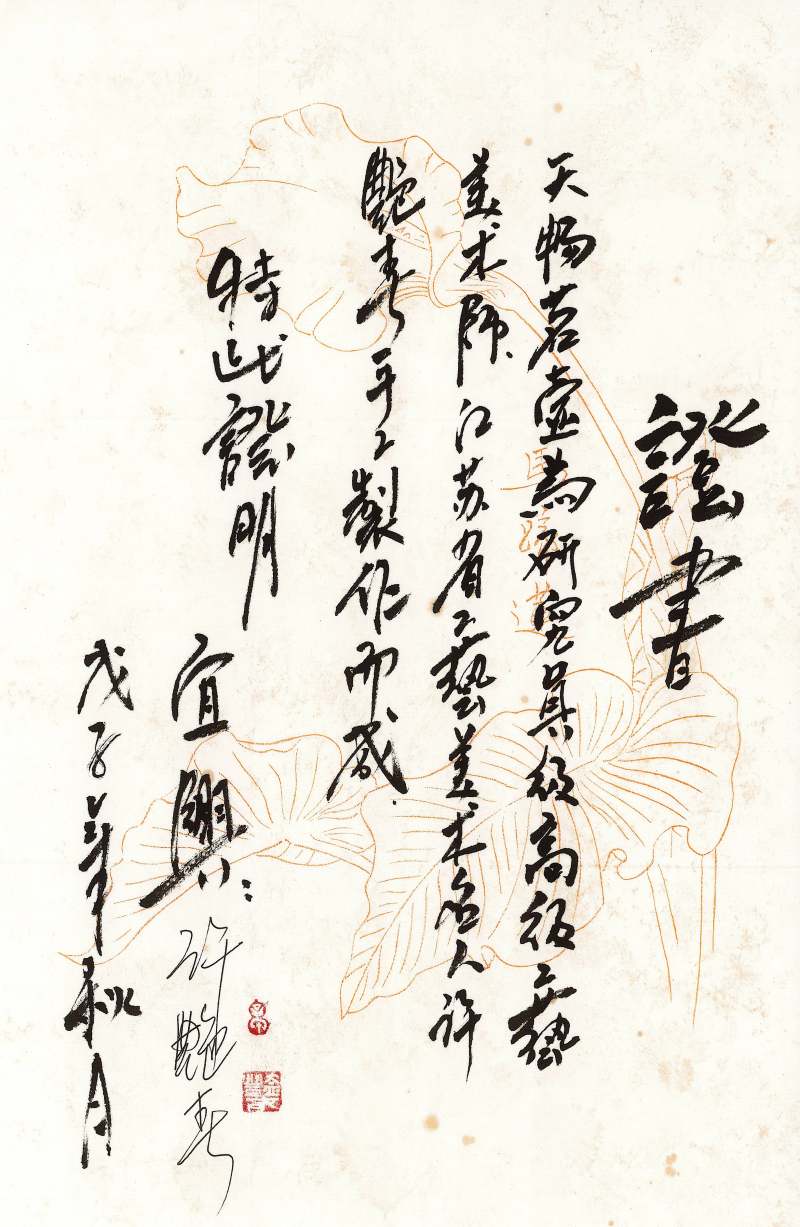 證書
天畅茗壶為研究員级高级工藝
美术師、江苏省工藝美术名人许
艶春手工製作而成.
特此證明
宜興:许艶春
戊子年秋月